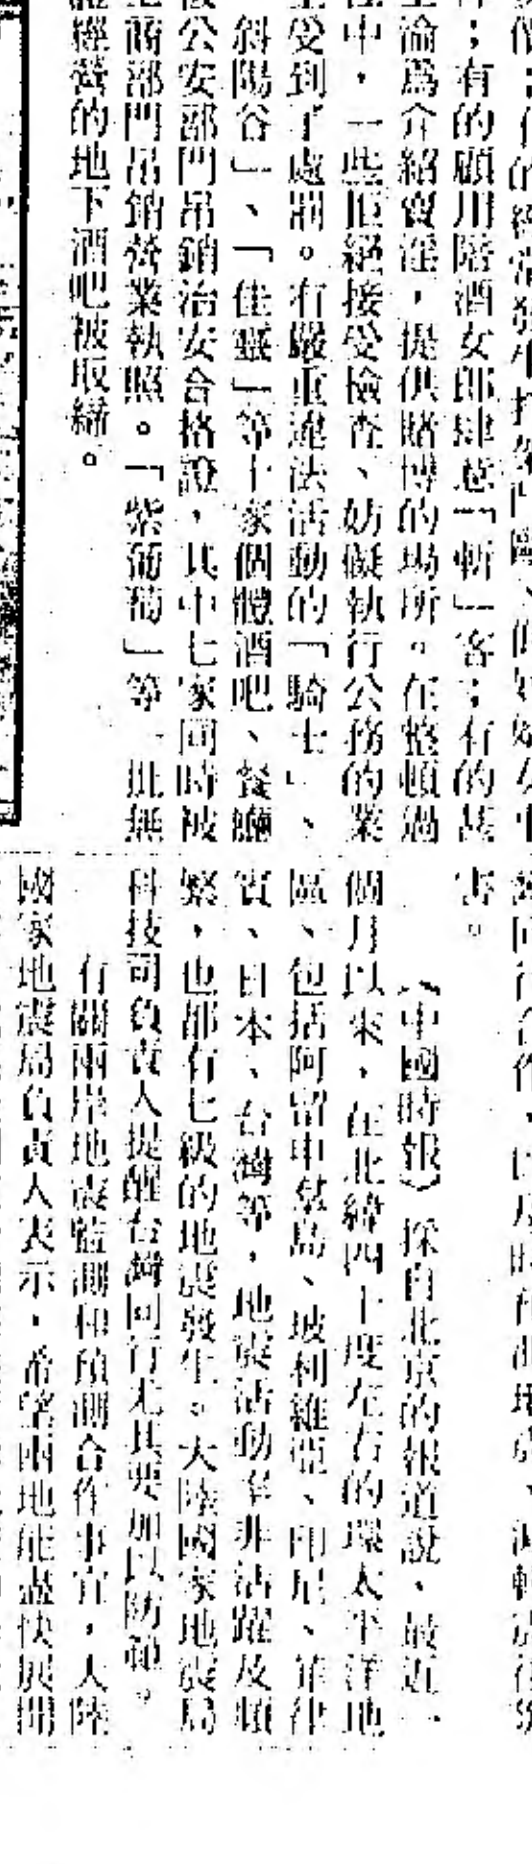 的顧用陪酒女郎肆意「斬」客；有的甚
淪為介紹賣淫，提供賭博的場所。在整頓過
中，一些拒絕接受檢查、妨礙執行公務的業
受到了處罰。有嚴重違法活動的「騎士」、
斜陽谷」、「佳靈」等十家個體酒吧、餐廳
公安部門吊銷治安合格證，其中七家同時被
商部門吊銷營業執照。「紫葡萄」等一批無
經營的地下酒吧被取締。
害。
（中國時報）採自北京的報道說、最近一
個月以來，在北緯四十度左右的環太平洋地
區、包括阿留申羣島、玻利維亞、印尼、菲律
賓、日本、台灣等，地震活動率非活躍及頻
繁，也都有七級的地震發生。大陸國家地震局
科技司負責人提醒台灣同行尤其要加以防範。
有關兩岸地震監測和預測合作事宜，大陸
國家地震局負責人表示，希望兩地能盡快展開